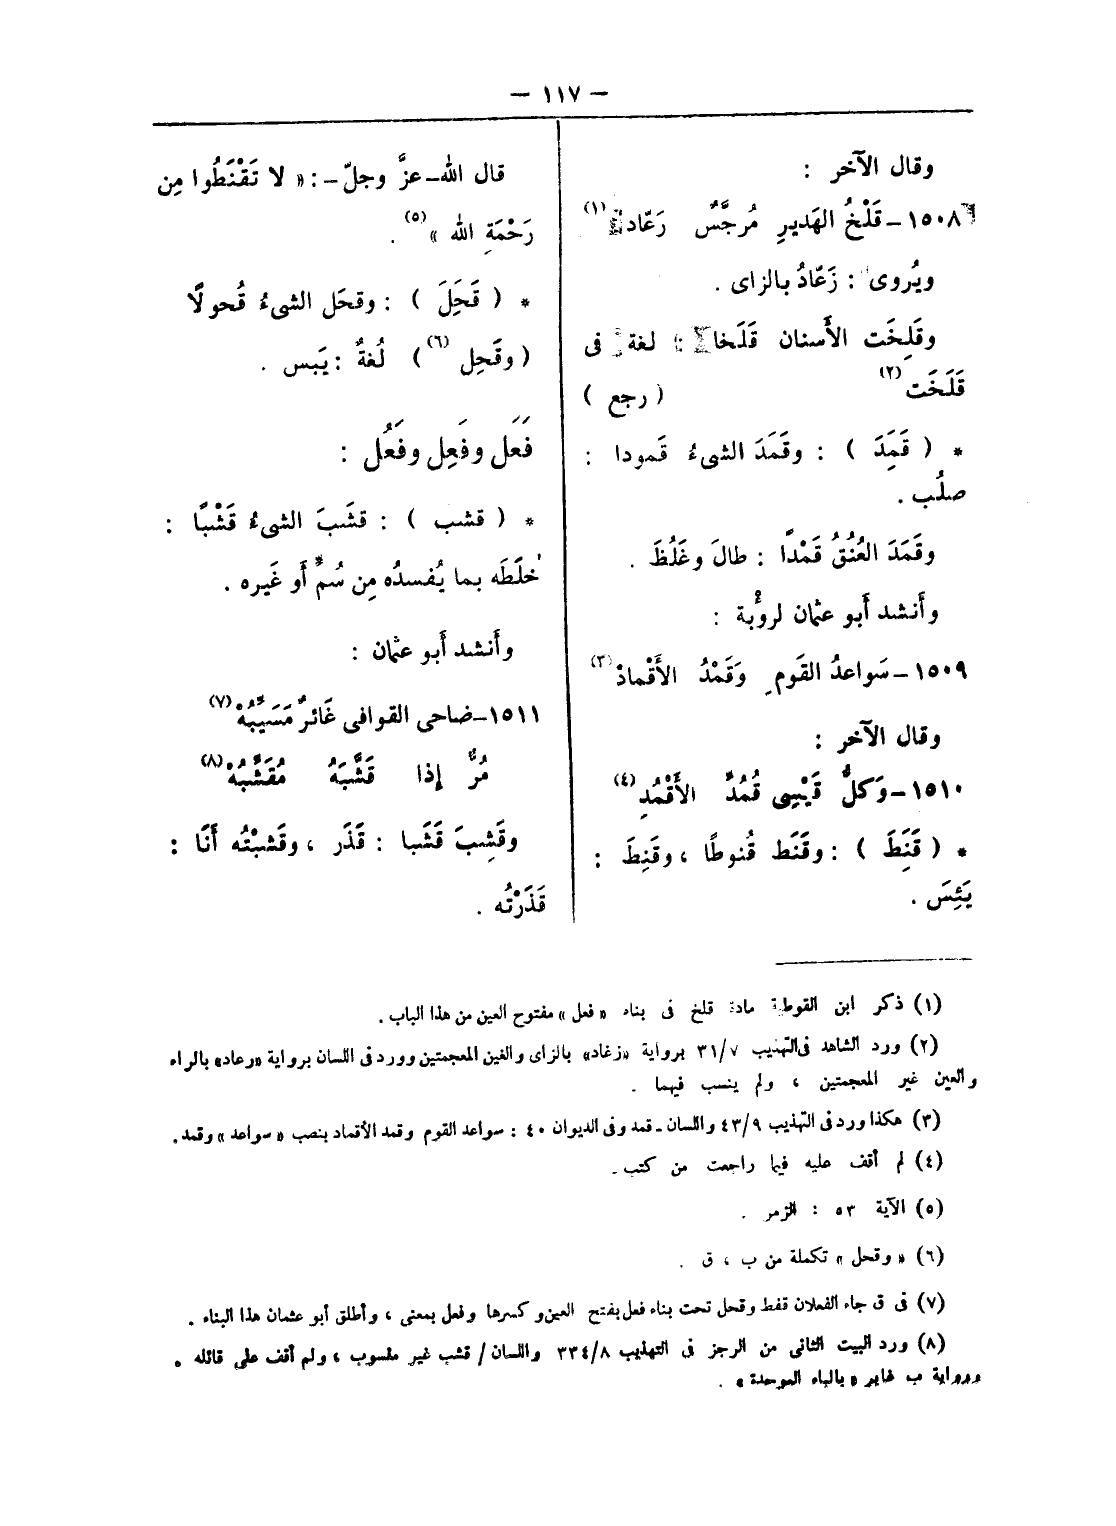 – ١١٧ –
وقال الآخر :
١٥٠٨ – قَلْخُ الهَديرِ مُرجَّسٌ رَعّاد (١)
ويُروى : زَعّادُ بالزاى .
وقَلِخَت الأَسنان قَلَخا : لغة فى
قَلَخَت (٢) ( رجع )
* ( قَمِدَ ) : وقَمَدَ الشىءُ قَمودا :
صلُب .
وقَمَدَ العُنُقُ قَمْدًا : طالَ وغَلُظَ .
وأَنشد أَبو عثمان لرؤْبة :
١٥٠٩ – سَواعدُ القَومِ وَقَمْدُ الأَقْمادْ (٣)
وقال الآخر :
١٥١٠ – وَكلُّ قَيْسِى قُمُدِّ الأَقْمُدِ (٤)
* ( قَنِطَ ) : وقَنَط قُنوطًا ، وقَنِطَ :
يَئِسَ .
قال الله – عزَّ وجلّ – : « لا تَقْنَطُوا مِن
رَحْمَةِ الله » (٥) .
* ( قَحَِلَ ) : وقحَل الشىءُ قُحولًا
( وقَحِل (٦) ) لُغةٌ : يَبس .
فَعَل وفَعِل وفَعُل :
* ( قشب ) : قشَبَ الشىءُ قَشْبًا :
خلَطَه بما يُفسدُه مِن سُمٍّ أَو غَيره .
وأَنشد أَبو عثمان :
١٥١١ – ضاحى القوافى غَائرٌ مَسَيَّبُهْ (٧)
مُرٌّ إذا قَشَّبَهُ مُقَشِّبُهْ (٨)
وقَشِبَ قَشَبا : قَذَر ، وقَشبْتُه أَنَا :
قَذَرْتُه .
(١) ذكر ابن القوطية مادة قلخ فى بناء « فعل » مفتوح العين من هذا الباب .
(٢) ورد الشاهد فى التهذيب ٣١/٧ برواية «زغاد» بالزاى والغين المعجمتين وورد فى اللسان برواية «رعاد» بالراء
والعين غير المعجمتين ، ولم ينسب فيهما .
(٣) هكذا ورد فى التهذيب ٤٣/٩ واللسان – قمد وفى الديوان ٤٠ : سواعد القوم وقمد الأقماد بنصب « سواعد » وقمد .
(٤) لم أقف عليه فيما راجعت من كتب .
(٥) الآية ٥٣ : الزمر .
(٦) « وقحل » تكملة من ب ، ق .
(٧) فى ق جاء الفعلان قفط وقحل تحت بناء فعل بفتح العين و كسرها وفعل بمعنى ، وأطلق أبو عثمان هذا البناء .
(٨) ورد البيت الثانى من الرجز فى التهذيب ٣٣٤/٨ واللسان / قشب غير منسوب ، ولم أقف على قائله .
ورواية ب غابر « بالباء الموحدة » .